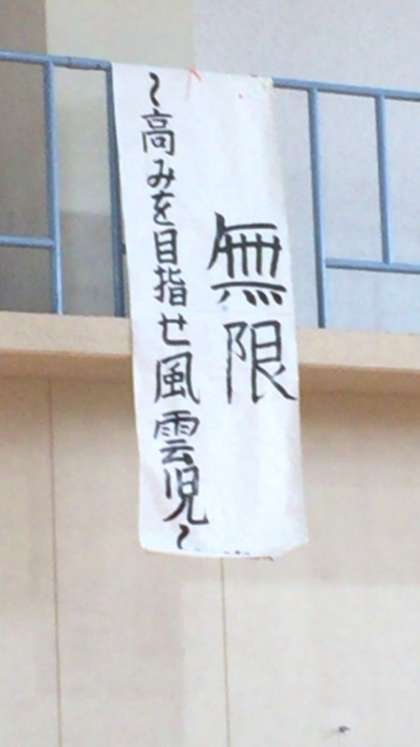 無限
~高みを目指せ風雲児~